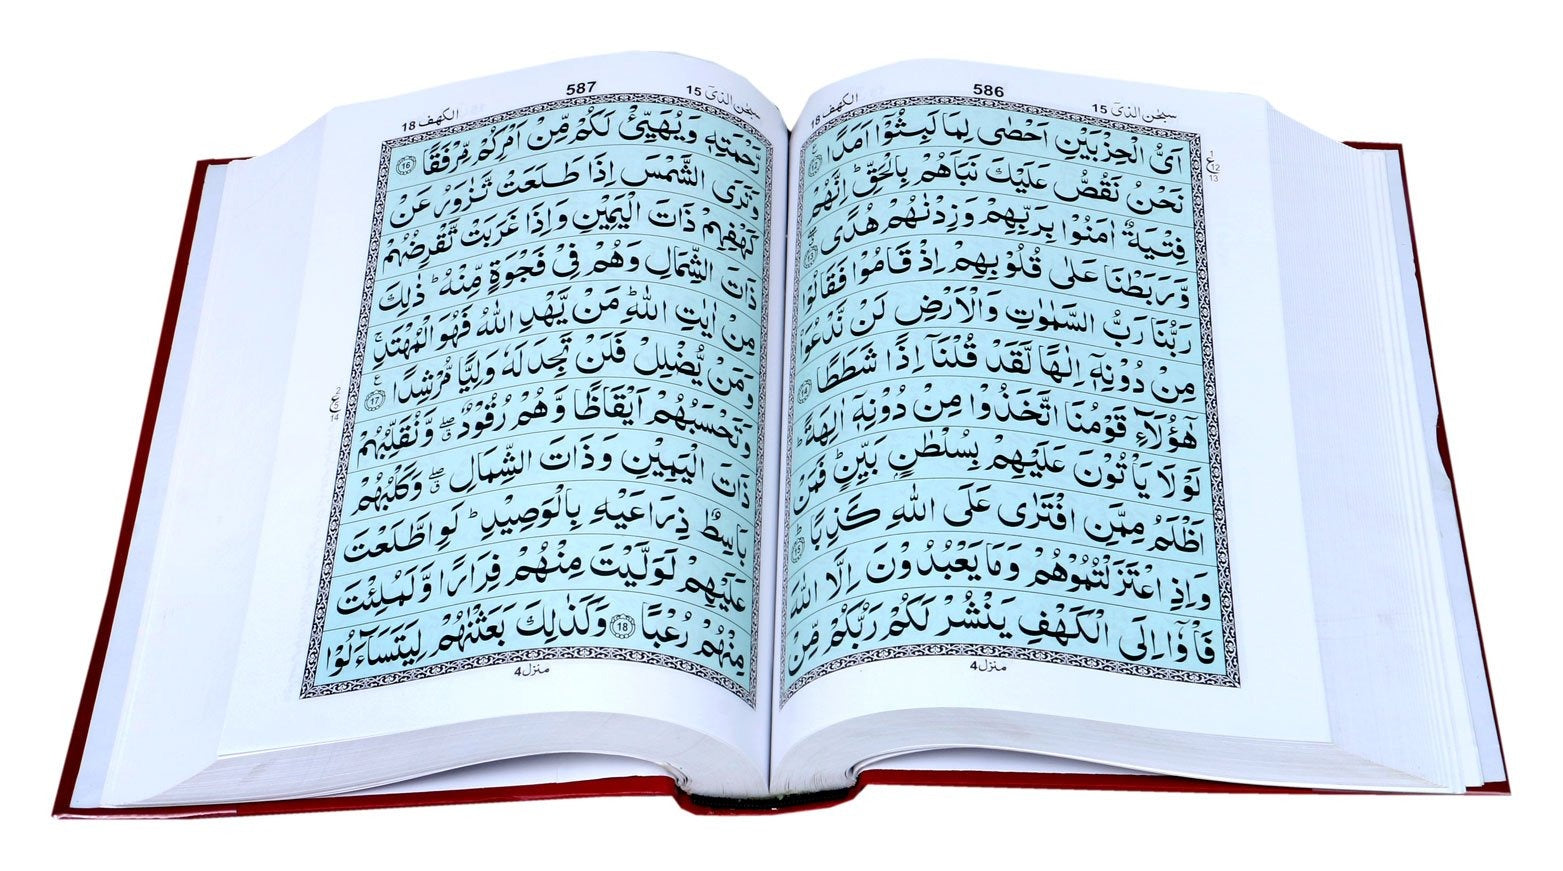 سبحٰن الذیٓ 15
586
الکھف 18
اَیُّ الْحِزْبَیْنِ اَحْصٰی لِمَا لَبِثُوْۤا اَمَدًا ﴿12﴾
نَحْنُ نَقُصُّ عَلَیْكَ نَبَاَهُمْ بِالْحَقِّ ؕ اِنَّهُمْ
فِتْیَةٌ اٰمَنُوْا بِرَبِّهِمْ وَزِدْنٰهُمْ هُدًی ﴿13﴾
وَّرَبَطْنَا عَلٰی قُلُوْبِهِمْ اِذْ قَامُوْا فَقَالُوْا
رَبُّنَا رَبُّ السَّمٰوٰتِ وَالْاَرْضِ لَنْ نَّدْعُوَا۟
مِنْ دُوْنِهٖۤ اِلٰهًا لَّقَدْ قُلْنَاۤ اِذًا شَطَطًا ﴿14﴾
هٰۤؤُلَآءِ قَوْمُنَا اتَّخَذُوْا مِنْ دُوْنِهٖۤ اٰلِهَةً ؕ
لَوْلَا یَاْتُوْنَ عَلَیْهِمْ بِسُلْطٰنٍۭ بَیِّنٍ ؕ فَمَنْ
اَظْلَمُ مِمَّنِ افْتَرٰی عَلَی اللّٰهِ كَذِبًا ﴿15﴾
وَاِذِ اعْتَزَلْتُمُوْهُمْ وَمَا یَعْبُدُوْنَ اِلَّا اللّٰهَ
فَاْوٗۤا اِلَی الْكَهْفِ یَنْشُرْ لَكُمْ رَبُّكُمْ مِّنْ
منزل 4
سبحٰن الذیٓ 15
587
الکھف 18
رَّحْمَتِهٖ وَیُهَیِّئْ لَكُمْ مِّنْ اَمْرِكُمْ مِّرْفَقًا ﴿16﴾
وَتَرَی الشَّمْسَ اِذَا طَلَعَتْ تَّزٰوَرُ عَنْ
كَهْفِهِمْ ذَاتَ الْیَمِیْنِ وَاِذَا غَرَبَتْ تَّقْرِضُهُمْ
ذَاتَ الشِّمَالِ وَهُمْ فِیْ فَجْوَةٍ مِّنْهُ ؕ ذٰلِكَ
مِنْ اٰیٰتِ اللّٰهِ ؕ مَنْ یَّهْدِ اللّٰهُ فَهُوَ الْمُهْتَدِ ۚ
وَمَنْ یُّضْلِلْ فَلَنْ تَجِدَ لَهٗ وَلِیًّا مُّرْشِدًا ﴿17﴾
وَتَحْسَبُهُمْ اَیْقَاظًا وَّهُمْ رُقُوْدٌ ۖ وَّنُقَلِّبُهُمْ
ذَاتَ الْیَمِیْنِ وَذَاتَ الشِّمَالِ ۖ وَكَلْبُهُمْ
بَاسِطٌ ذِرَاعَیْهِ بِالْوَصِیْدِ ؕ لَوِ اطَّلَعْتَ
عَلَیْهِمْ لَوَلَّیْتَ مِنْهُمْ فِرَارًا وَّلَمُلِئْتَ
مِنْهُمْ رُعْبًا ﴿18﴾ وَكَذٰلِكَ بَعَثْنٰهُمْ لِیَتَسَآءَلُوْا
منزل 4